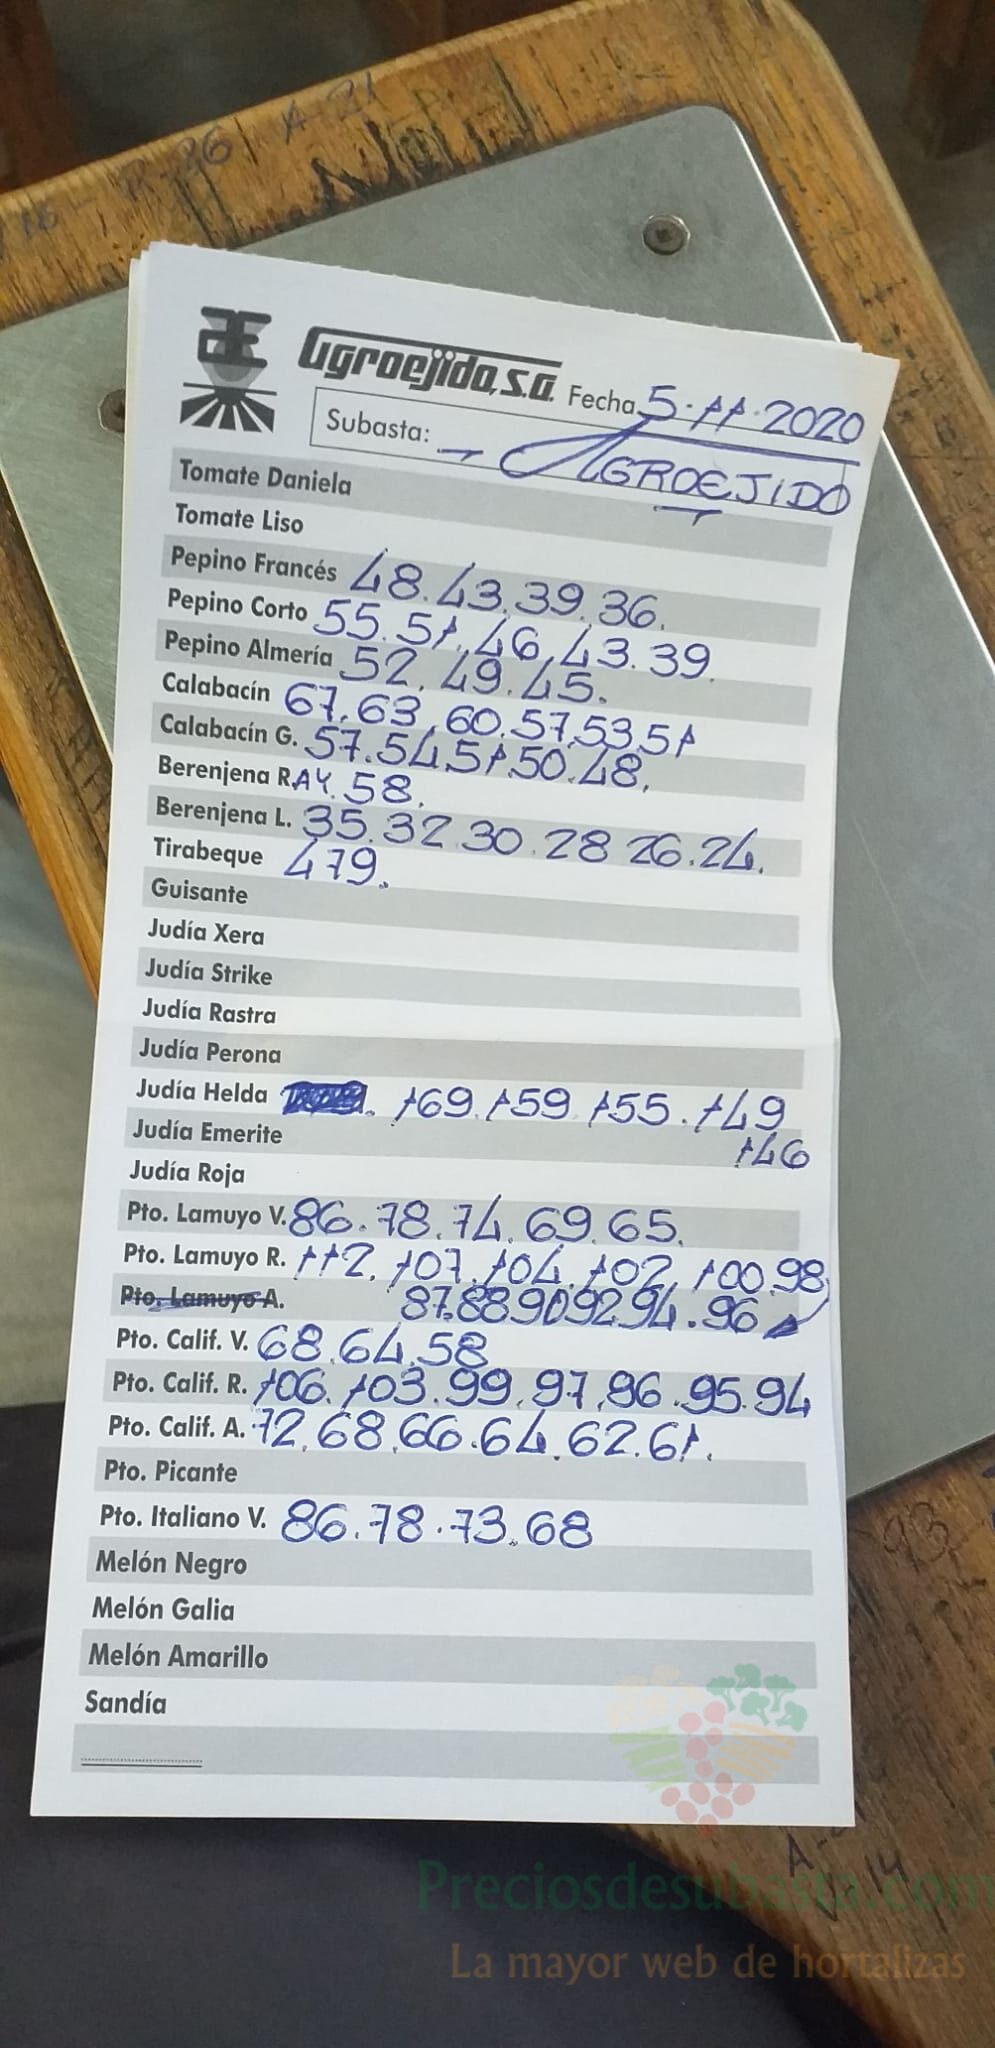 Agroejido, s.a. Fecha 5-11-2020
Subasta: - AGROEJIDO
Tomate Daniela
Tomate Liso
Pepino Francés 48.43.39.36.
Pepino Corto 55.51.46.43.39.
Pepino Almería 52.49.45.
Calabacín 67.63.60.57.53.51
Calabacín G. 57.54.51.50.48.
Berenjena RAY. 58.
Berenjena L. 35.32.30.28 26.24.
Tirabeque 479.
Guisante
Judía Xera
Judía Strike
Judía Rastra
Judía Perona
Judía Helda 169.159.155.149
Judía Emerite 146
Judía Roja
Pto. Lamuyo V. 86.78.74.69.65.
Pto. Lamuyo R. 112.107.104.102.100.98
Pto. Lamuyo A. 87.88.90.92.94.96
Pto. Calif. V. 68.64.58
Pto. Calif. R. 106.103.99.97.96.95.94
Pto. Calif. A. 72.68.66.64.62.61.
Pto. Picante
Pto. Italiano V. 86.78.73.68
Melón Negro
Melón Galia
Melón Amarillo
Sandía
Preciosdesubasta.com
La mayor web de hortalizas